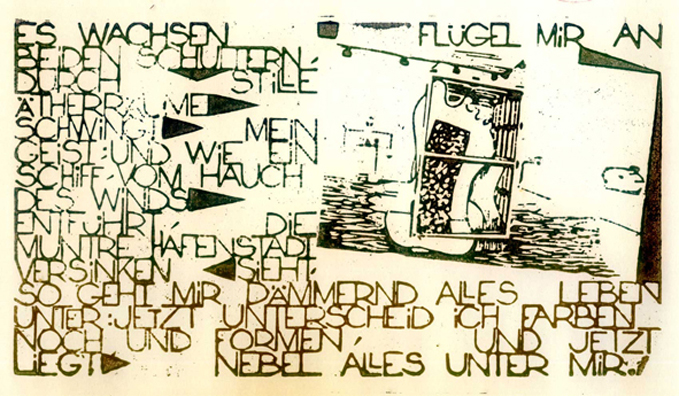 ES WACHSEN FLÜGEL MIR AN
BEIDEN SCHULTERN,
DURCH STILLE
ÄTHERRÄUME
SCHWINGT MEIN
GEIST: UND WIE EIN
SCHIFF VOM HAUCH
DES WINDS
ENTFÜHRT, DIE
MUNTRE HAFENSTADT
VERSINKEN SIEHT:
SO GEHT MIR DÄMMERND ALLES LEBEN
UNTER: JETZT UNTERSCHEID ICH FARBEN
NOCH UND FORMEN, UND JETZT
LIEGT NEBEL ALLES UNTER MIR.!